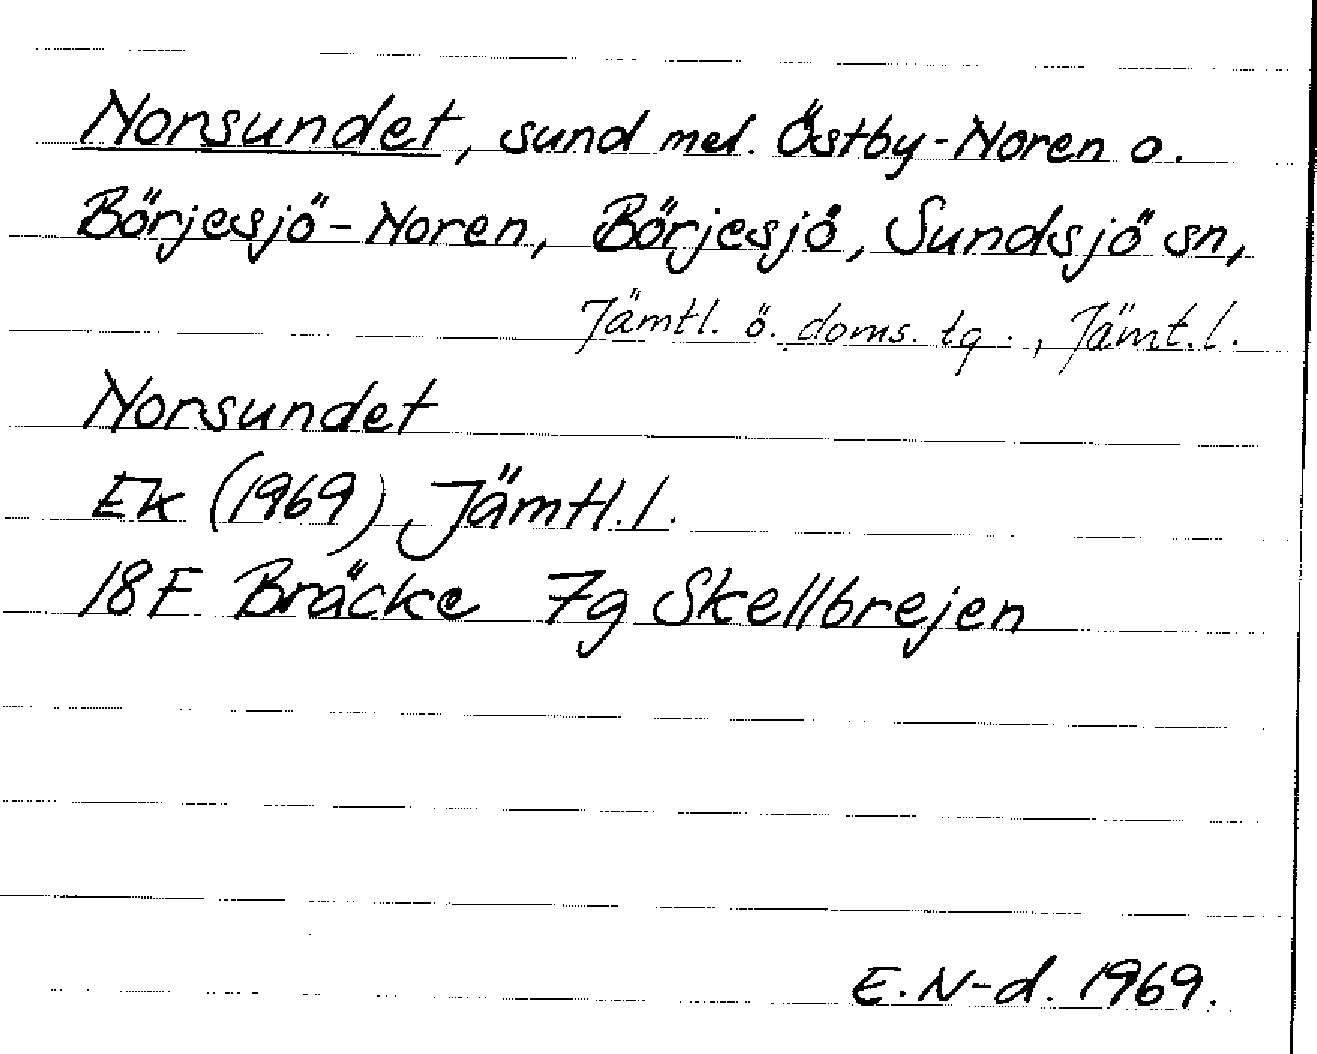 Norsundet, sund mel. Östby-Noren o.
Börjesjö-Noren, Börjesjö, Sundsjö sn,
Jämtl. ö. doms. tg., Jämt.l.
Norsundet
Ek (1969) Jämtl.l.
18F Bräcke 7g Skellbrejen
E.N-d. 1969.